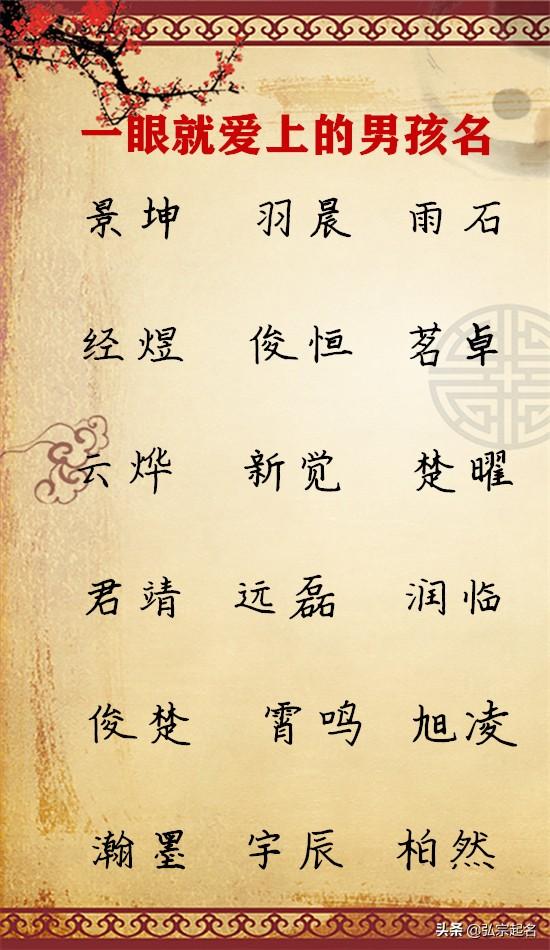 一眼就爱上的男孩名
景坤 羽晨 雨石
经煜 俊恒 茗卓
云烨 新觉 楚曜
君靖 远磊 润临
俊楚 霄鸣 旭凌
瀚墨 宇辰 柏然
头条 @弘宗起名